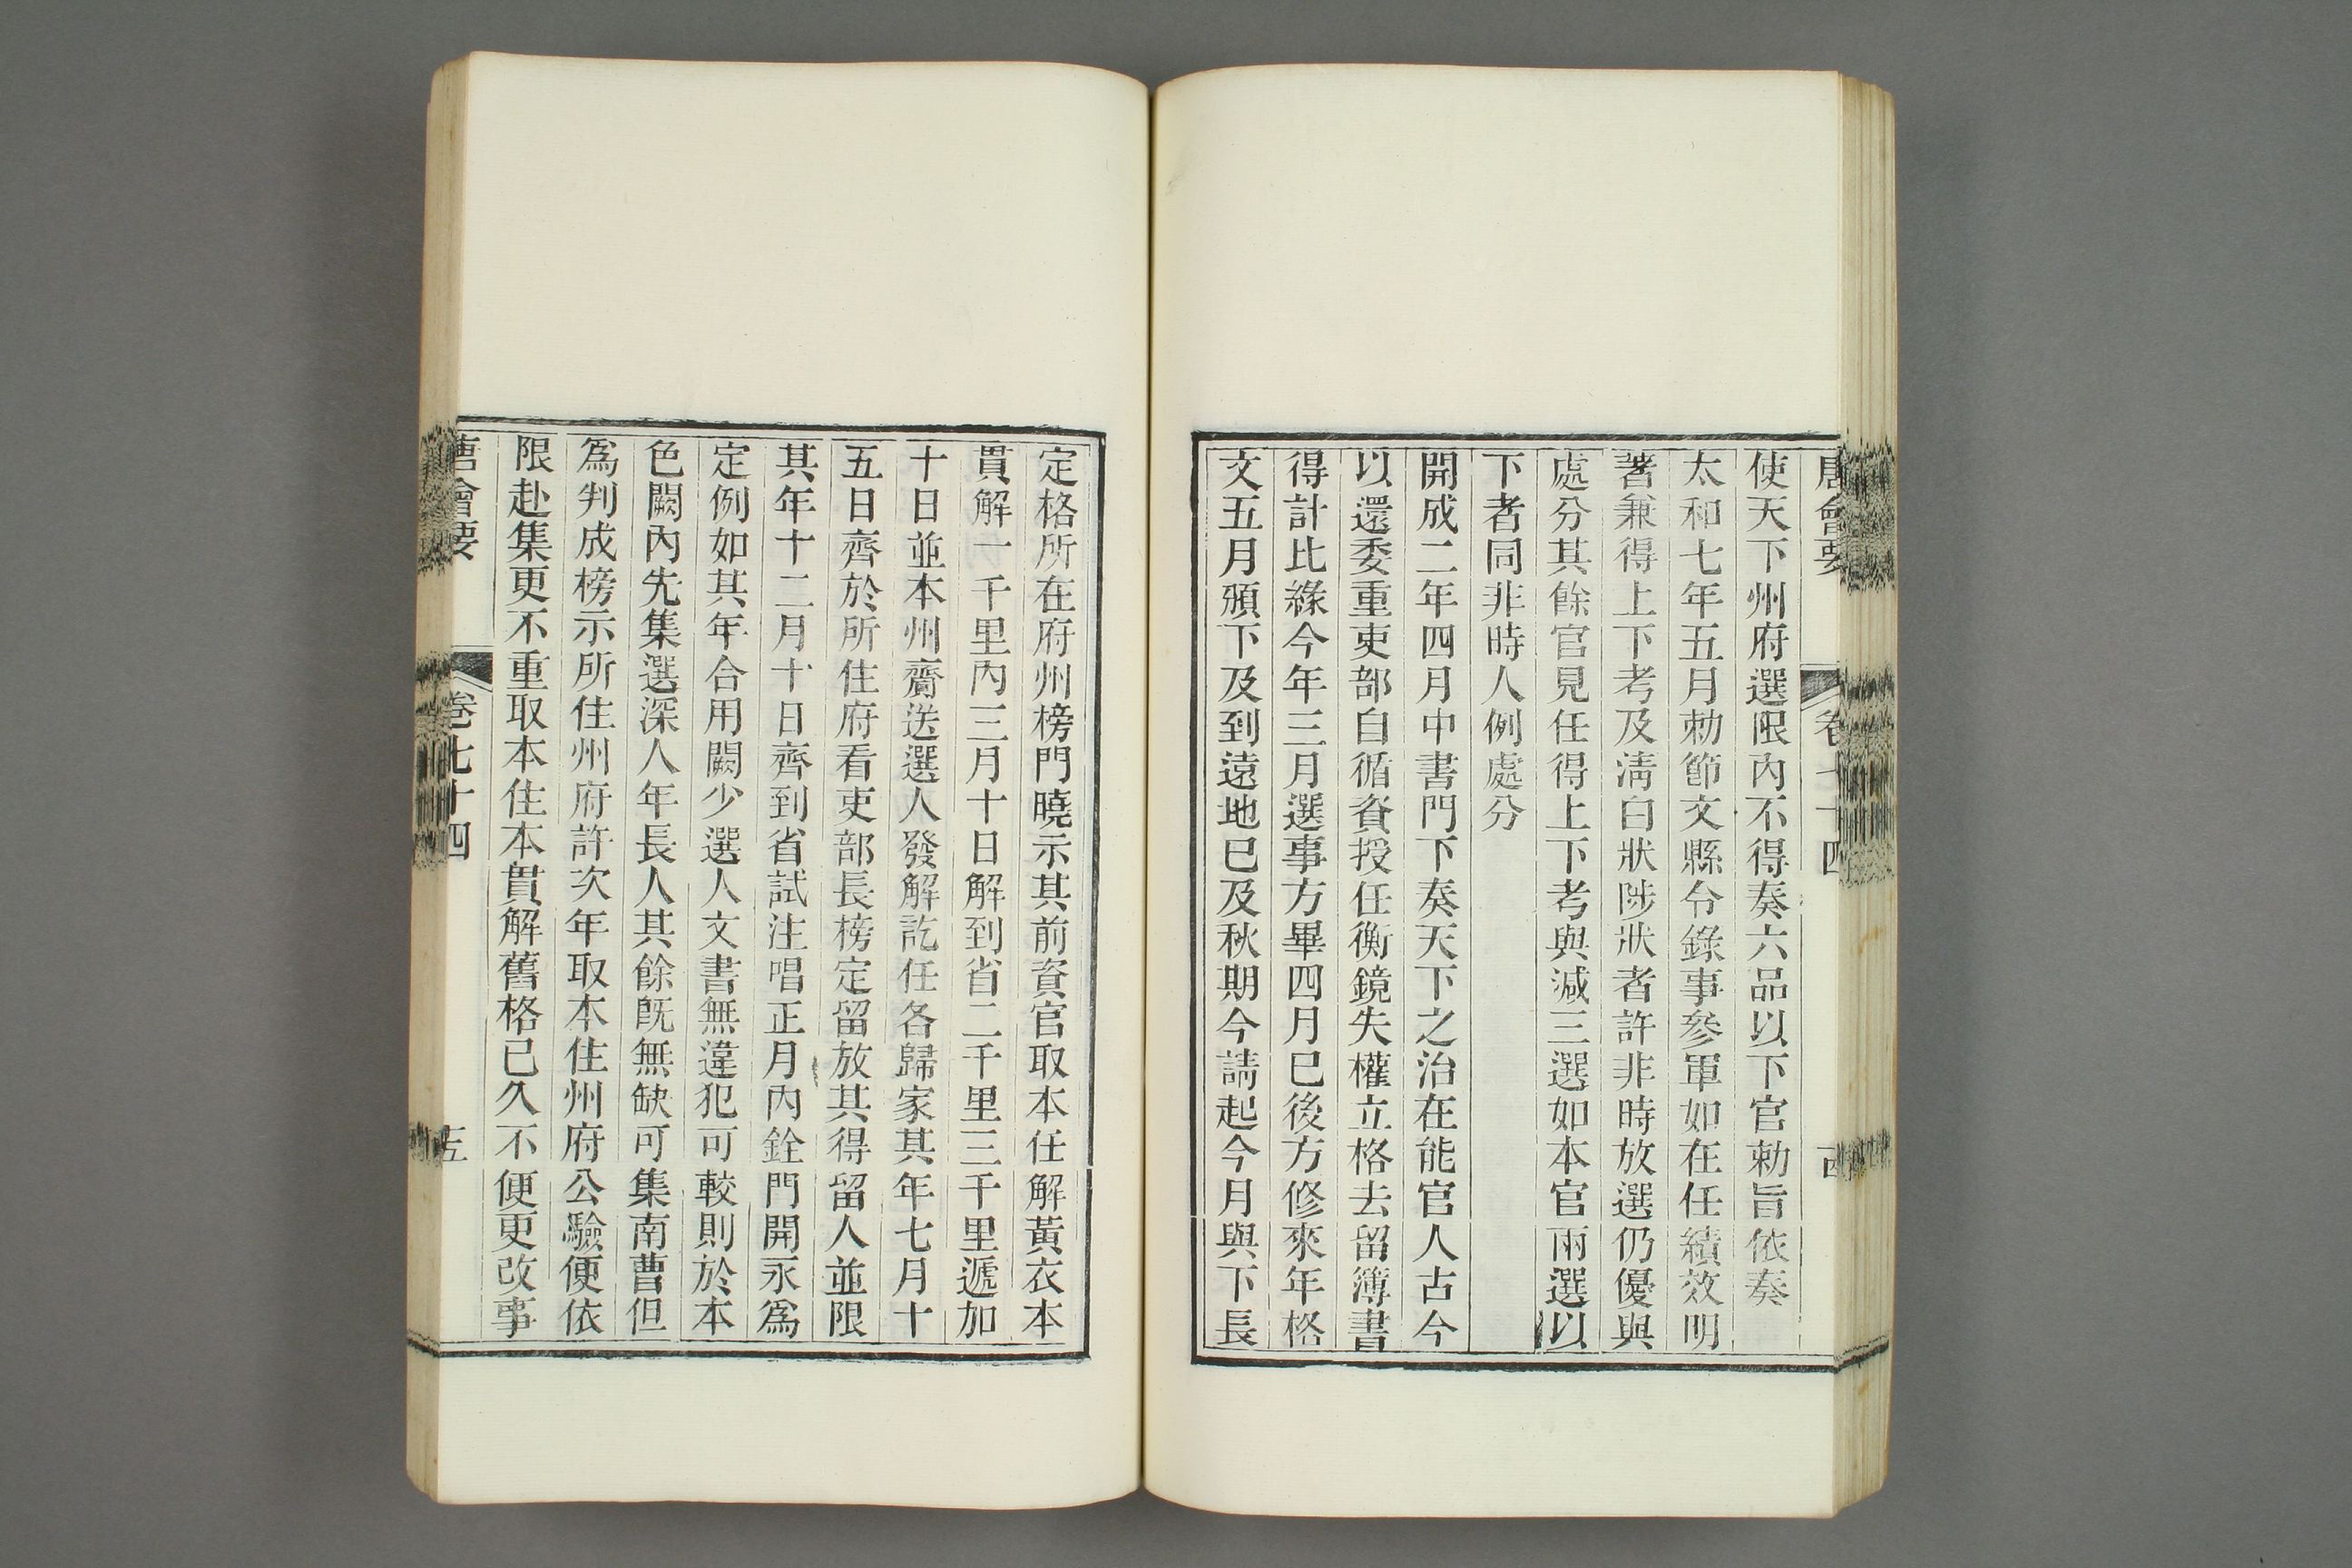 唐會要 卷七十四
使天下州府選限內不得奏六品以下官勅旨依奏
太和七年五月勅節文縣令錄事參軍如在任績效明
著兼得上下考及淸白狀陟狀者許非時放選仍優與
處分其餘官見任得上下考與減三選如本官兩選以
下者同非時人例處分
開成二年四月中書門下奏天下之治在能官人古今
以還委重吏部自循資授任衡鏡失權立格去留簿書
得計比緣今年三月選事方畢四月巳後方修來年格
文五月頒下及到遠地巳及秋期今請起今月與下長
定格所在府州榜門曉示其前資官取本任解黃衣本
貫解一千里內三月十日解到省二千里三千里遞加
十日並本州齎送選人發解訖任各歸家其年七月十
五日齊於所住府看吏部長榜定留放其得留人並限
其年十二月十日齊到省試注唱正月內銓門開永爲
定例如其年合用闕少選人文書無違犯可較則於本
色闕內先集選深人年長人其餘旣無缺可集南曹但
爲判成榜示所住州府許次年取本住州府公驗便依
限赴集更不重取本住本貫解舊格已久不便更改事
唐會要 卷七十四 五